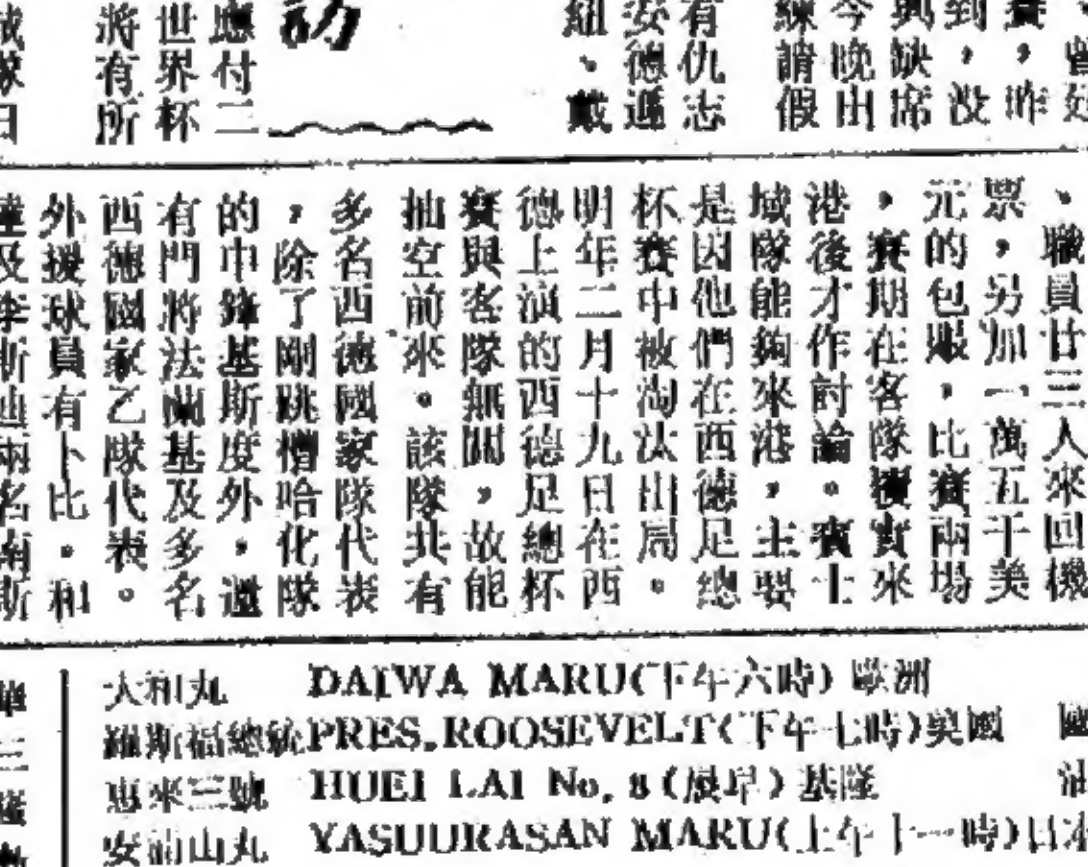 、曾
賽，昨
到，没
興缺席
今晚由
練請假
有仇志
安德遜
紐、戴
訪
應付二
世界杯
將有所
、職員廿三人來回機
票，另加一萬五千美
元的包賬，比賽兩場
，賽期在客隊獲實來
港後才作討論。賓士
域隊能夠來港，主要
是因他們在西德足總
杯賽中被淘汰出局。
明年二月十九日在西
德上演的西德足總杯
賽與客隊無關，故能
抽空前來。該隊共有
多名西德國家隊代表
，除了剛跳槽哈化隊
的中鋒基斯度外，還
有門將法蘭基及多名
西德國家乙隊代表。
外援球員有卜比，和
達及李斯迪兩名南斯
大和丸 DAIWA MARU(下午六時)歐洲
羅斯福總統PRES.ROOSEVELT(下午七時)美國
惠來三號 HUEI LAI No. 8(晨早)基隆
安浦山丸 YASUURASAN MARU(上午十一時)日本